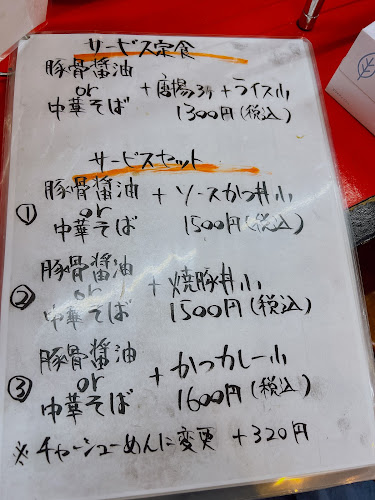 サービス定食
豚骨醤油
or + 唐揚3ケ + ライス小
中華そば 1300円(税込)
サービスセット
豚骨醤油 + ソースかつ丼小
① or
中華そば 1500円(税込)
豚骨醤油 + 焼豚丼小
② or
中華そば 1500円(税込)
豚骨醤油 + かつカレー小
③ or
中華そば 1600円(税込)
※チャーシューめんに変更 +320円